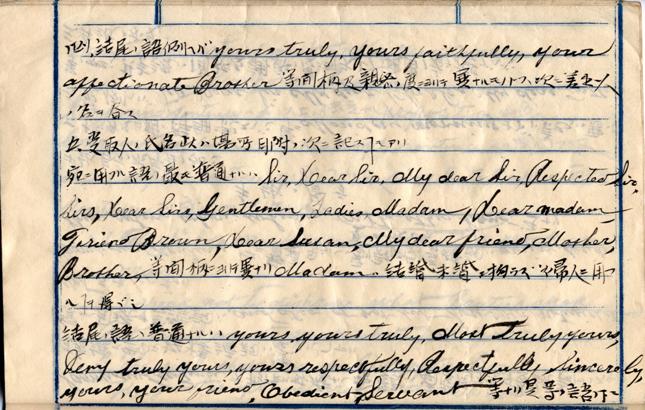 結尾ノ語例ヘバ yours truly, yours faithfully, your
affectionate Brother 等間柄ノ親疎ノ度ニヨリテ異ナルモノ 次ニ差出人
ノ名ヲ
受取人ノ氏名 次ニ記スコトアリ
ル語ノ最モ普通ナルハ Sir, Dear Sir, My dear Sir, Respected Sir,
Sirs, Dear Sirs, Gentlemen, Ladies, Madam, Dear madam
Friend Brown, Dear Susan, My dear friend, Mother,
Brother, 等間柄ニヨリテ異ナリ Madam ハ 結婚未婚ニ拘ラズ婦人ニ用
ヲ得ベシ
結尾ノ語ノ普通ナルハ yours, yours truly, Most Truly yours,
Very truly yours, yours respectfully, Respectfully, Sincerely,
yours, your friend, Obedient Servant 等ナリ